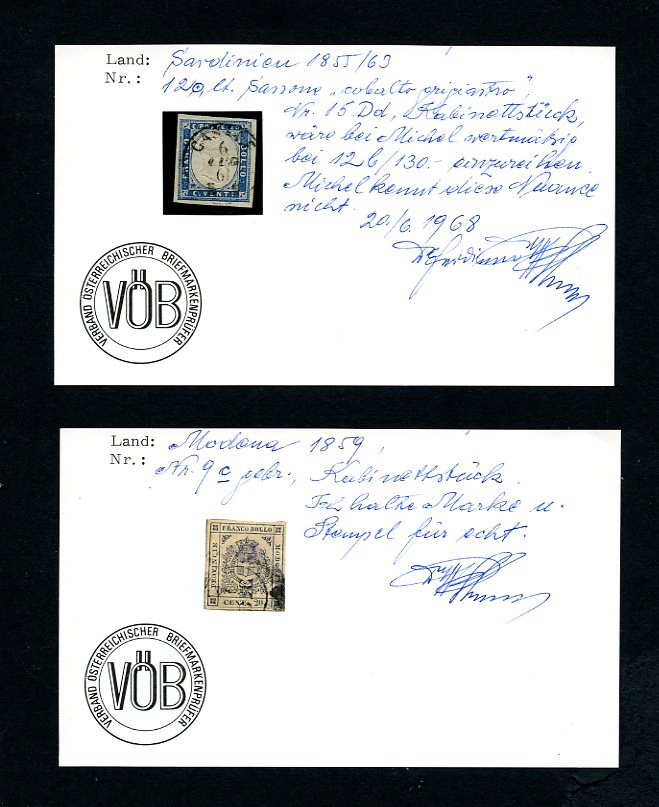 Land: Sardinien 1855/63
Nr.: 12 lt. Sassone „cobalto grigiastro",
Nr. 15 Dd, Kabinettstück,
wäre bei Michel wertmäßig
bei 12b/130.- einzureihen.
Michel kennt diese Nuance
nicht.
20/6. 1968
Dr Ferdinand
C. POSTE
FRANCO
BOLLO
C. VENTI
6
6
VERBAND ÖSTERREICHISCHER BRIEFMARKENPRÜFER
VÖB
Land: Modena 1859,
Nr.: Nr. 9c gebr., Kabinettstück.
Ich halte Marke u.
Stempel für echt.
FRANCO BOLLO
PROVINCIE
MODONESI
CENT. 20
VERBAND ÖSTERREICHISCHER BRIEFMARKENPRÜFER
VÖB